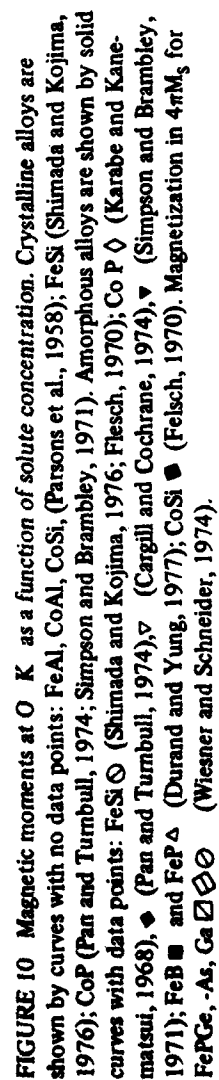 FIGURE 10 Magnetic moments at O K as a function of solute concentration. Crystalline alloys are
shown by curves with no data points: FeAl, CoAl, CoSi, (Parsons et al., 1958); FeSi (Shimada and Kojima,
1976); CoP (Pan and Turnbull, 1974; Simpson and Brambley, 1971). Amorphous alloys are shown by solid
curves with data points: FeSi ⦸ (Shimada and Kojima, 1976; Flesch, 1970); Co P ◇ (Karabe and Kane-
matsui, 1968), ◆ (Pan and Turnbull, 1974),▽ (Cargill and Cochrane, 1974),▼ (Simpson and Brambley,
1971); FeB ■ and FeP△ (Durand and Yung, 1977); CoSi ■ (Felsch, 1970). Magnetization in 4πM_S for
FePGe, -As, Ga ⍁ ⊖ ⊘ (Wiesner and Schneider, 1974).